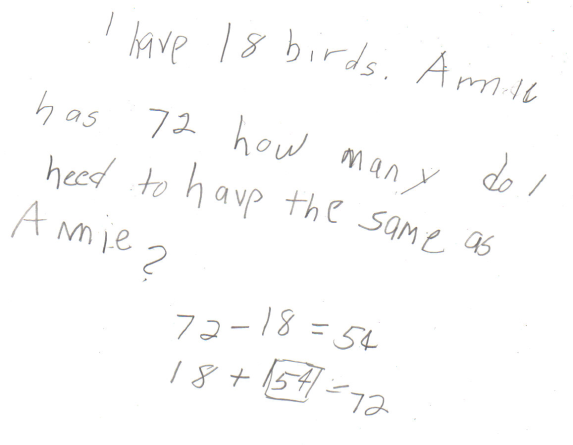 I have 18 birds. Annie
has 72 how many do I
need to have the same as
Annie?
72-18=54
18+54=72